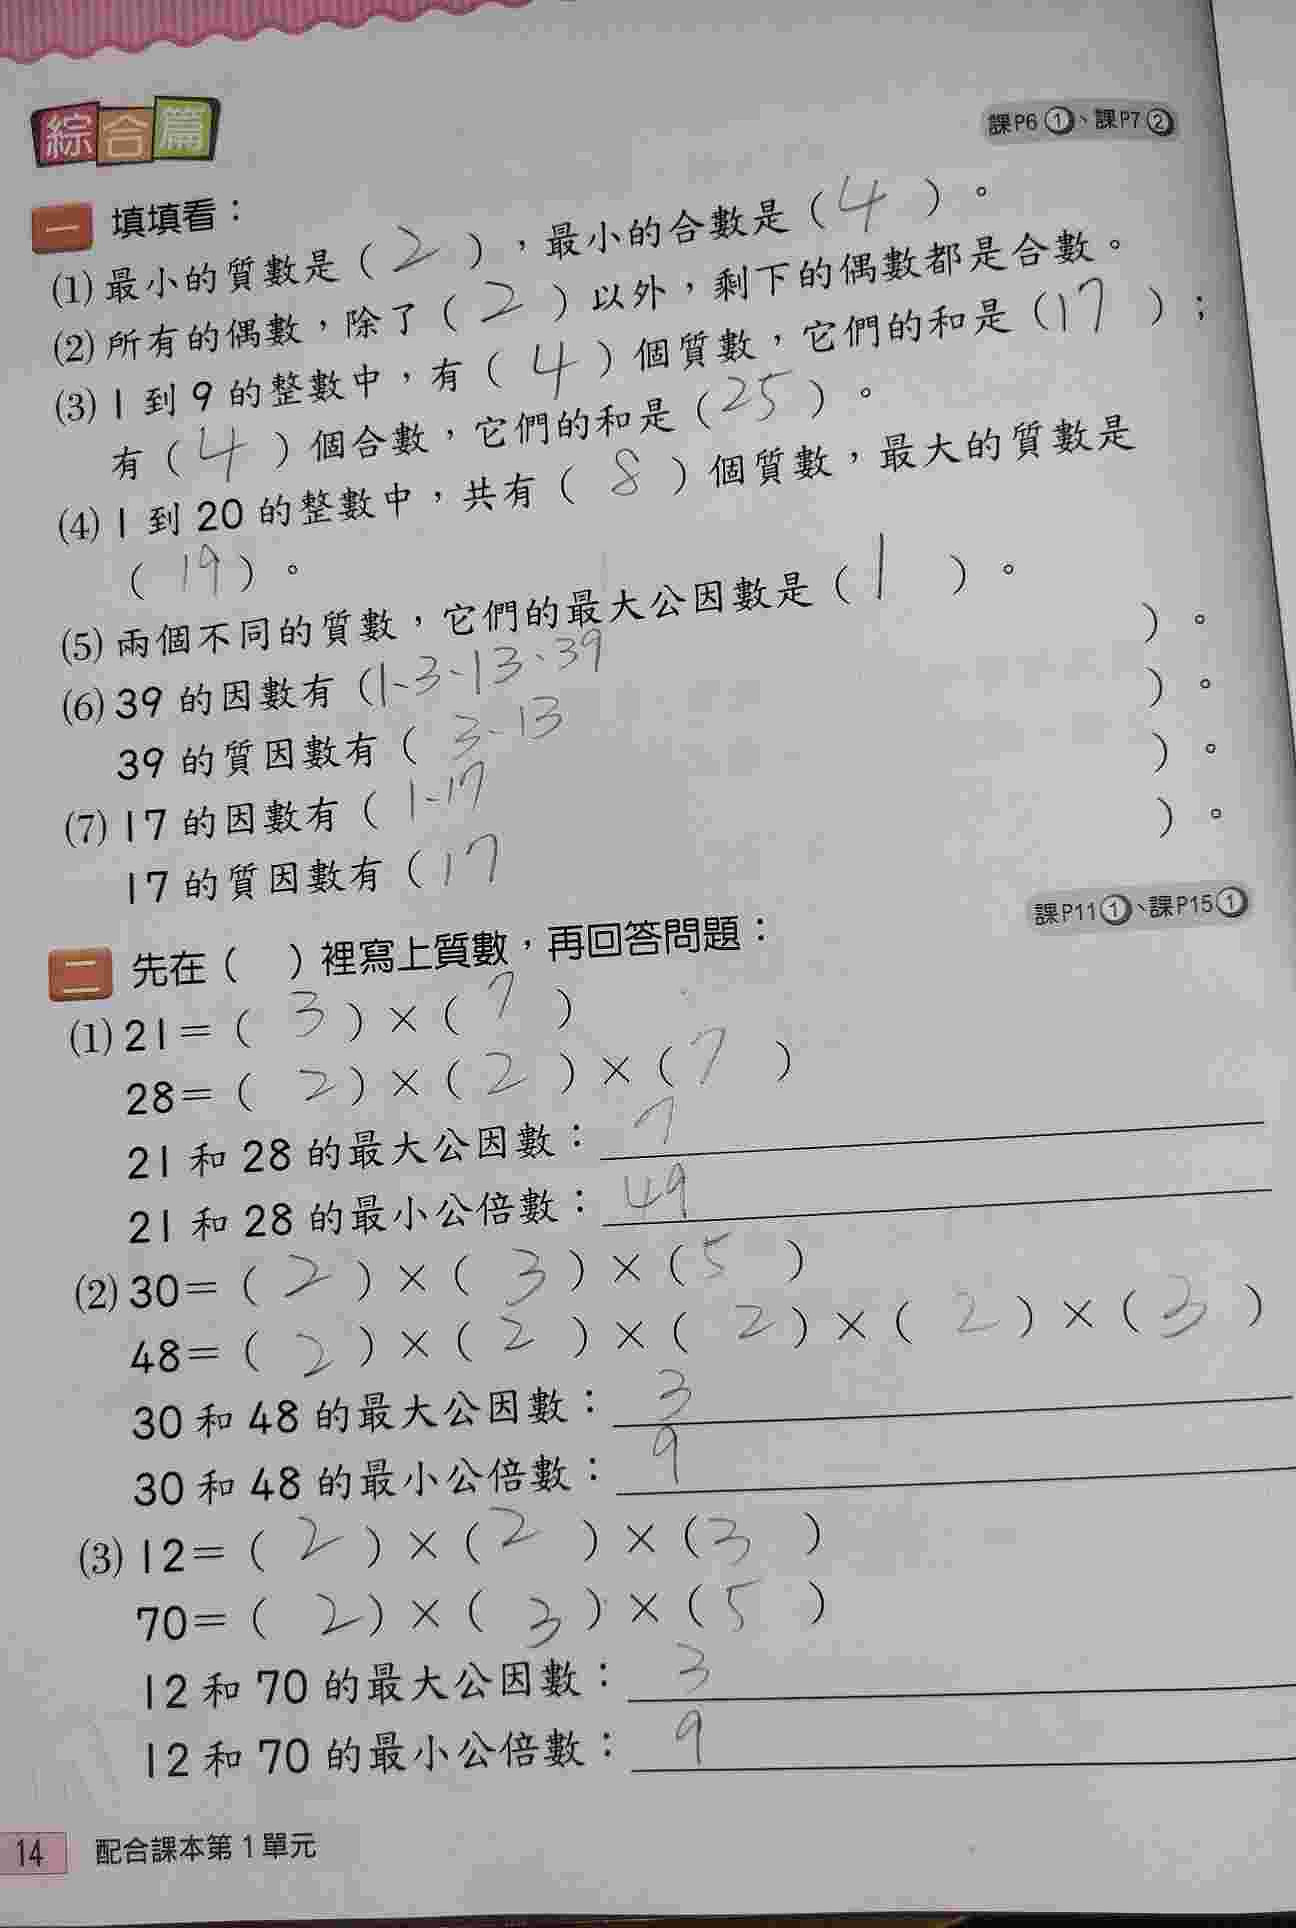 綜合篇
課P6①、課P7②
一 填填看：
(1)最小的質數是（2），最小的合數是（4）。
(2)所有的偶數，除了（2）以外，剩下的偶數都是合數。
(3)1到9的整數中，有（4）個質數，它們的和是（17）；
有（4）個合數，它們的和是（25）。
(4)1到20的整數中，共有（8）個質數，最大的質數是
（19）。
(5)兩個不同的質數，它們的最大公因數是（1）。
(6)39的因數有（1、3、13、39）。
39的質因數有（3、13）。
(7)17的因數有（1、17）。
17的質因數有（17）。
課P11①、課P15①
二 先在（ ）裡寫上質數，再回答問題：
(1)21＝（3）×（7）
28＝（2）×（2）×（7）
21和28的最大公因數：7
21和28的最小公倍數：49
(2)30＝（2）×（3）×（5）
48＝（2）×（2）×（2）×（2）×（3）
30和48的最大公因數：3
30和48的最小公倍數：9
(3)12＝（2）×（2）×（3）
70＝（2）×（3）×（5）
12和70的最大公因數：3
12和70的最小公倍數：9
14 配合課本第1單元